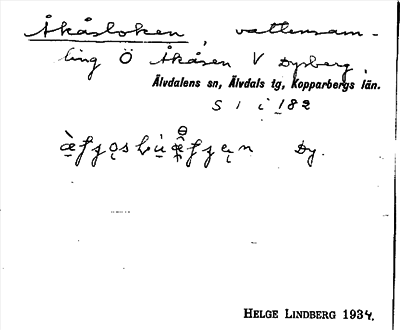 Åkåsloken, vattensam-
ling Ö Åkåsen V Dysberg.
Älvdalens sn, Älvdals tg, Kopparbergs län.
S 1 i 182
Dy.
HELGE LINDBERG 1934.